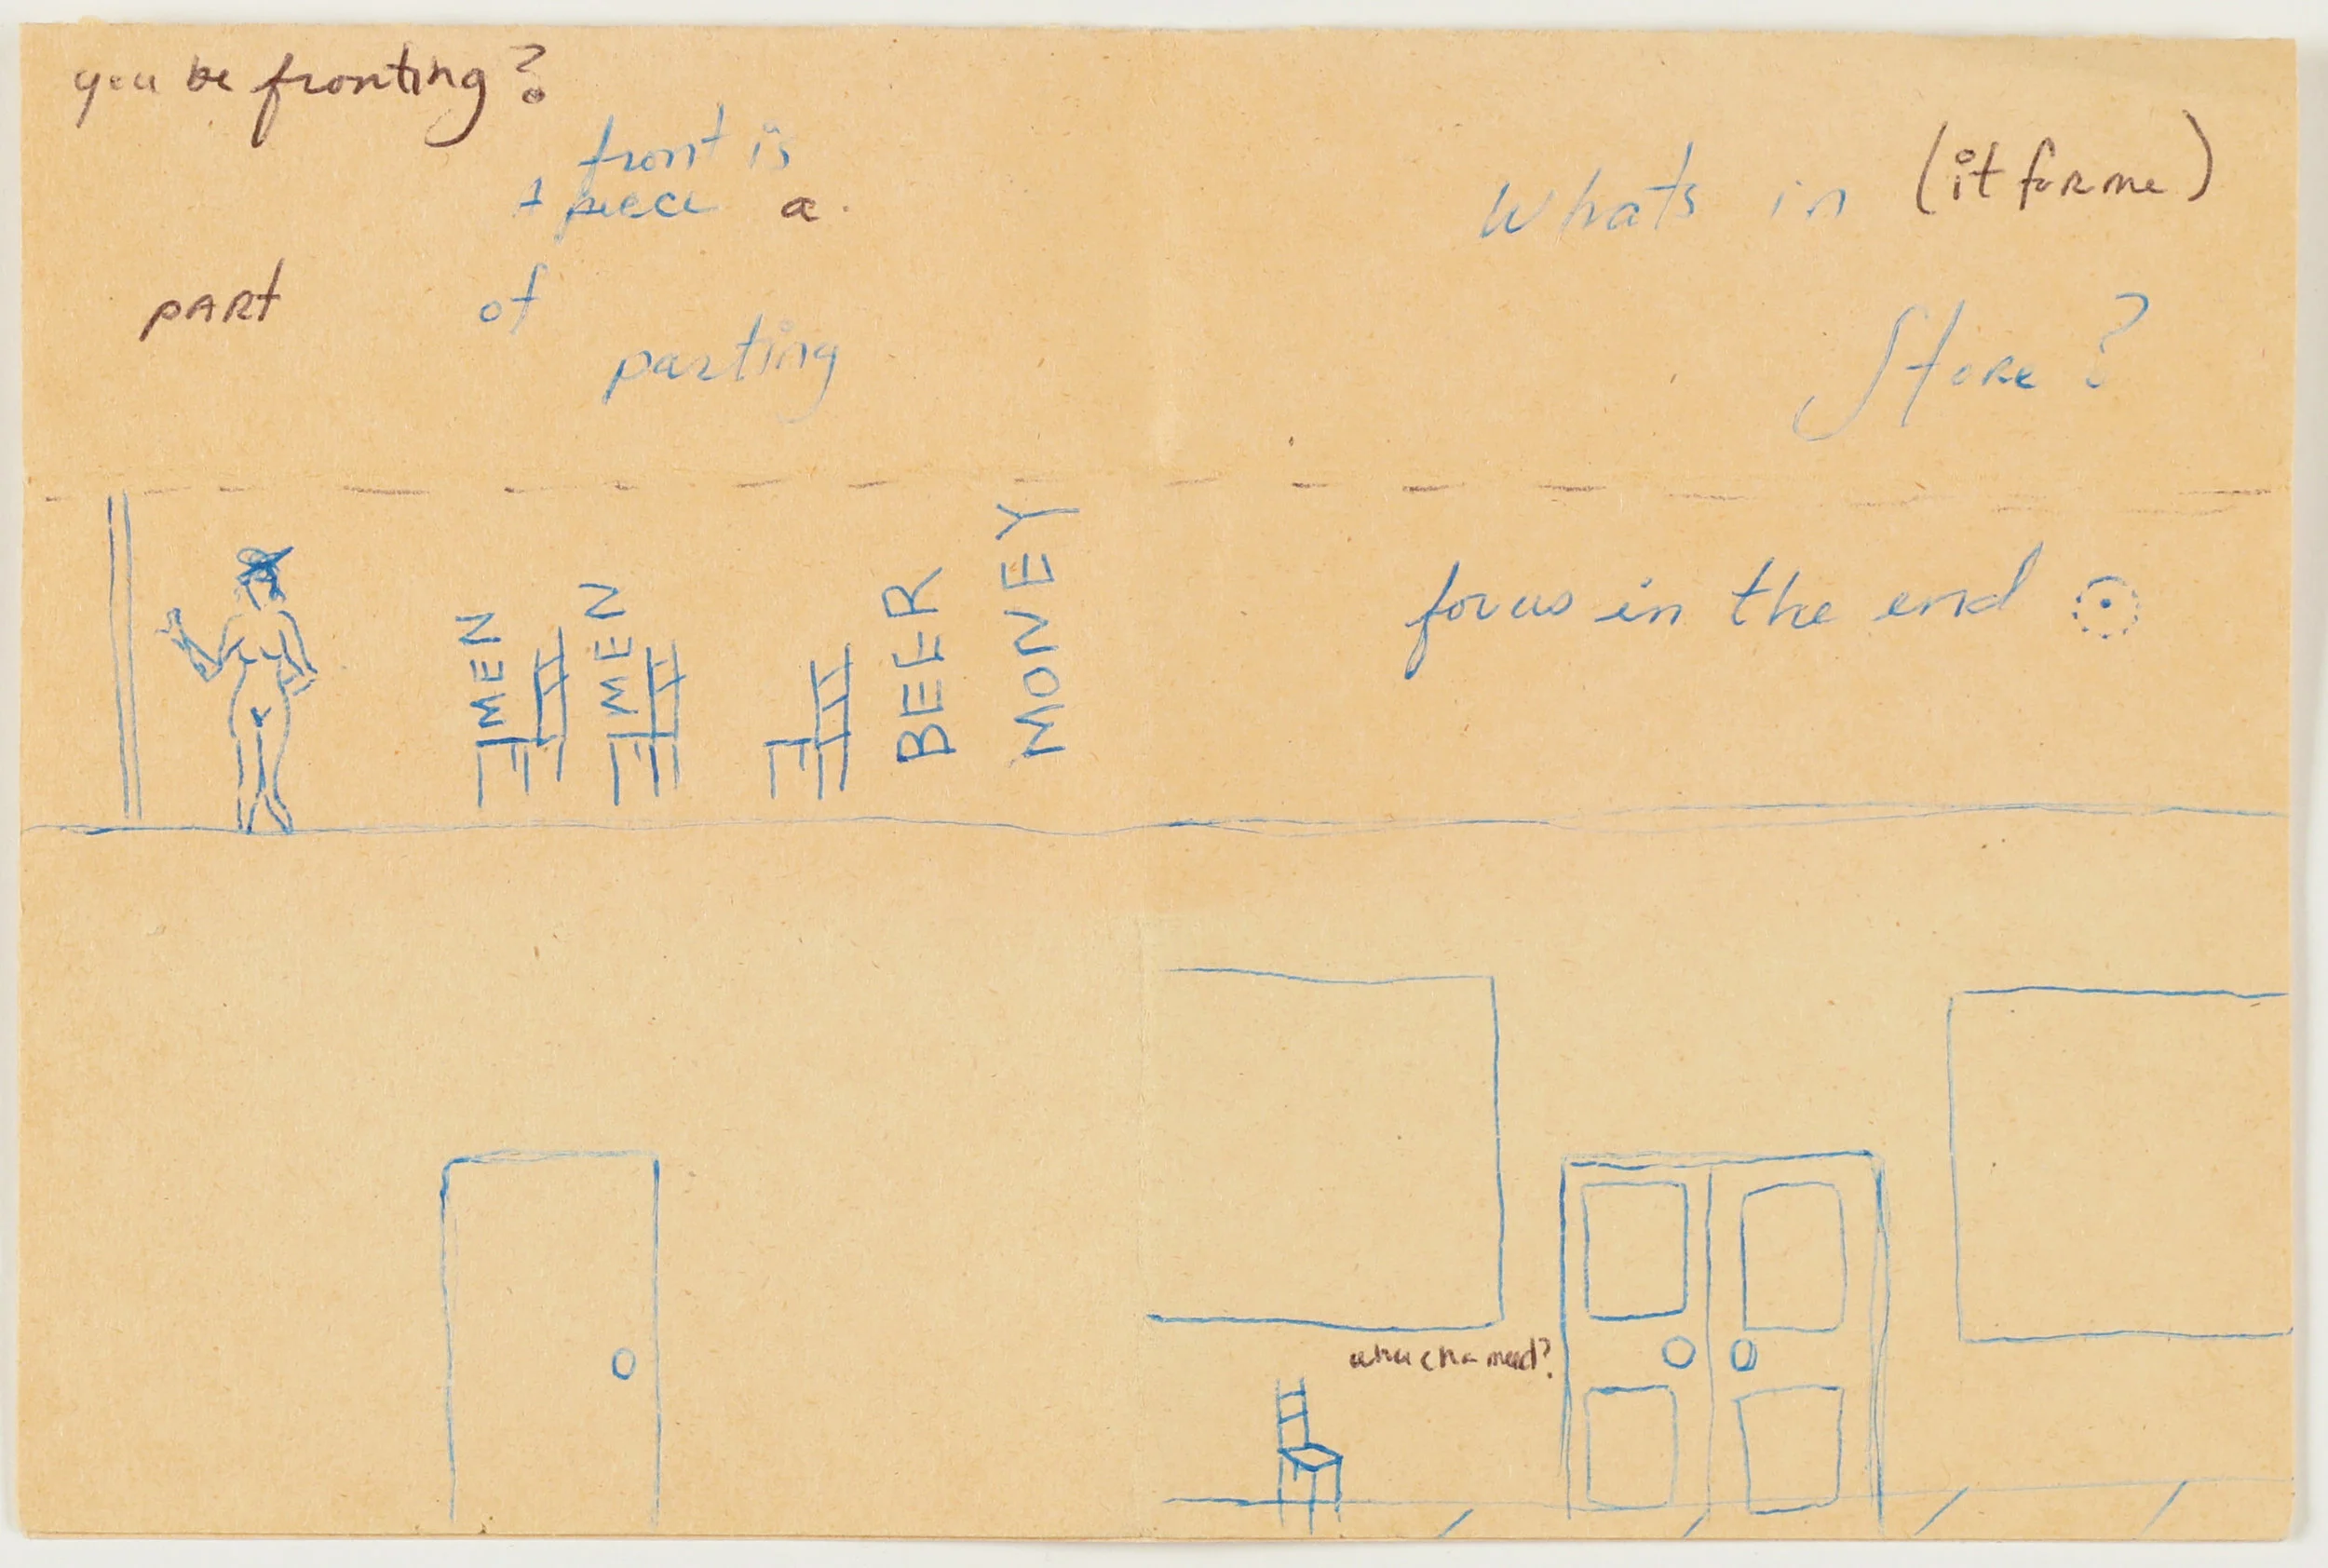 you be fronting?
front is
A piece a.
part of
parting
Whats in (it for me)
Store?
MEN
MEN
BEER
MONEY
focus in the end
whacha need?